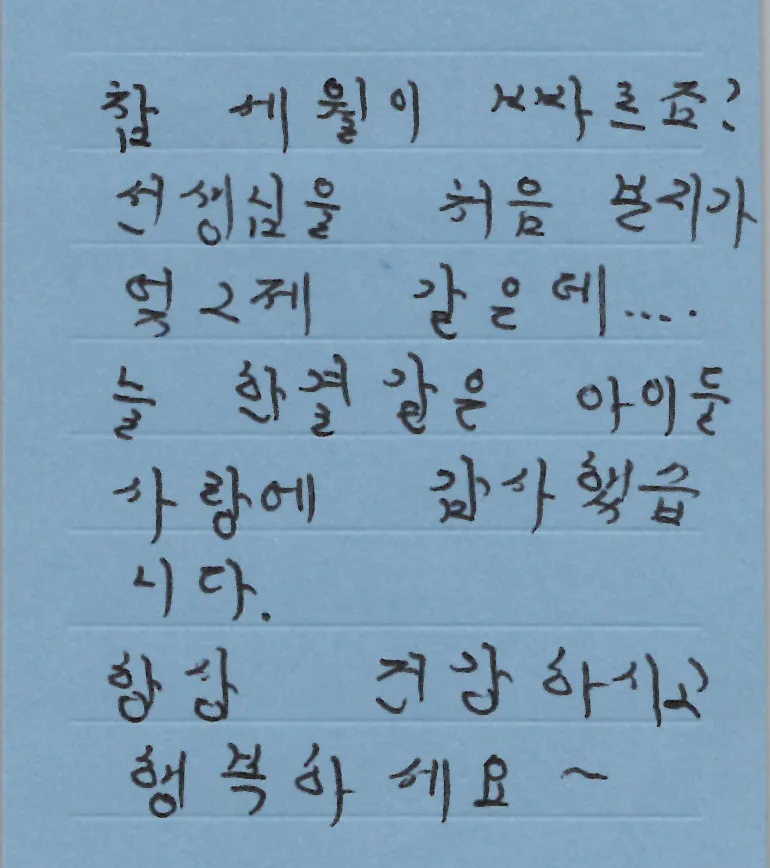 참 세월이 빠르죠?
선생님을 처음 뵌지가
엊그제 같은데....
늘 한결같은 아이들
사랑에 감사했습
니다.
항상 건강하시고
행복하세요~